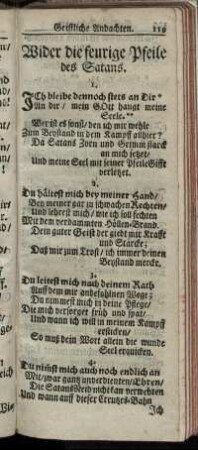 Geistliche Andachten. 119
Wider die feurige Pfeile
des Satans.
1.
ICh bleibe dennoch stets an Dir*
An dir / mein GOtt hangt meine
Seele.**
Wer ist es sonst / den ich mir wehle
Zum Beystand in dem Kampff allhier?
Da Satans Zorn und Grimm starck
an mich setzet /
Und meine Seel mit seiner Pfeile Gifft
verletzet.
2.
Du hältest mich bey meiner Hand /
Bey meiner gar zu schwachen Rechten /
Und lehrest mich / wie ich soll fechten
Mit dem verdammten Höllen-Brand.
Dein guter Geist der giebt mir Krafft
und Stärcke;
Daß mir zum Trost / ich immer deinen
Beystand mercke.
3.
Du leitest mich nach deinem Rath
Auff dem mir anbefohlnen Wege;
Du nimmest mich in deine Pflege /
Die mich versorget früh und spat /
Und wann ich will in meinem Kampff
ersticken /
So muß dein Wort allein die wunde
Seel erquicken.
4.
Du nimst mich auch noch endlich an
Mit / zwar gantz unverdienten / Ehren /
Die Satans Neid nicht kan verwehren
Und wann auff dieser Creutzes-Bahn
Ich